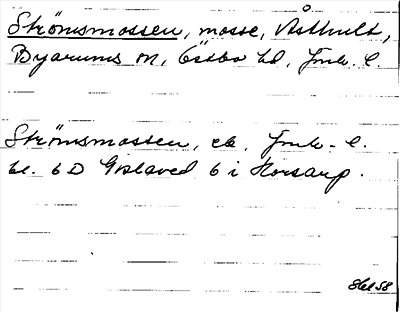 Strömsmossen, mosse, Åsthult,
Byarums sn, Östbo hd, Jmk. l.
Strömsmossen, ek. Jmk. l.
bl. 6 D Gislaved 6 i Horsarp.